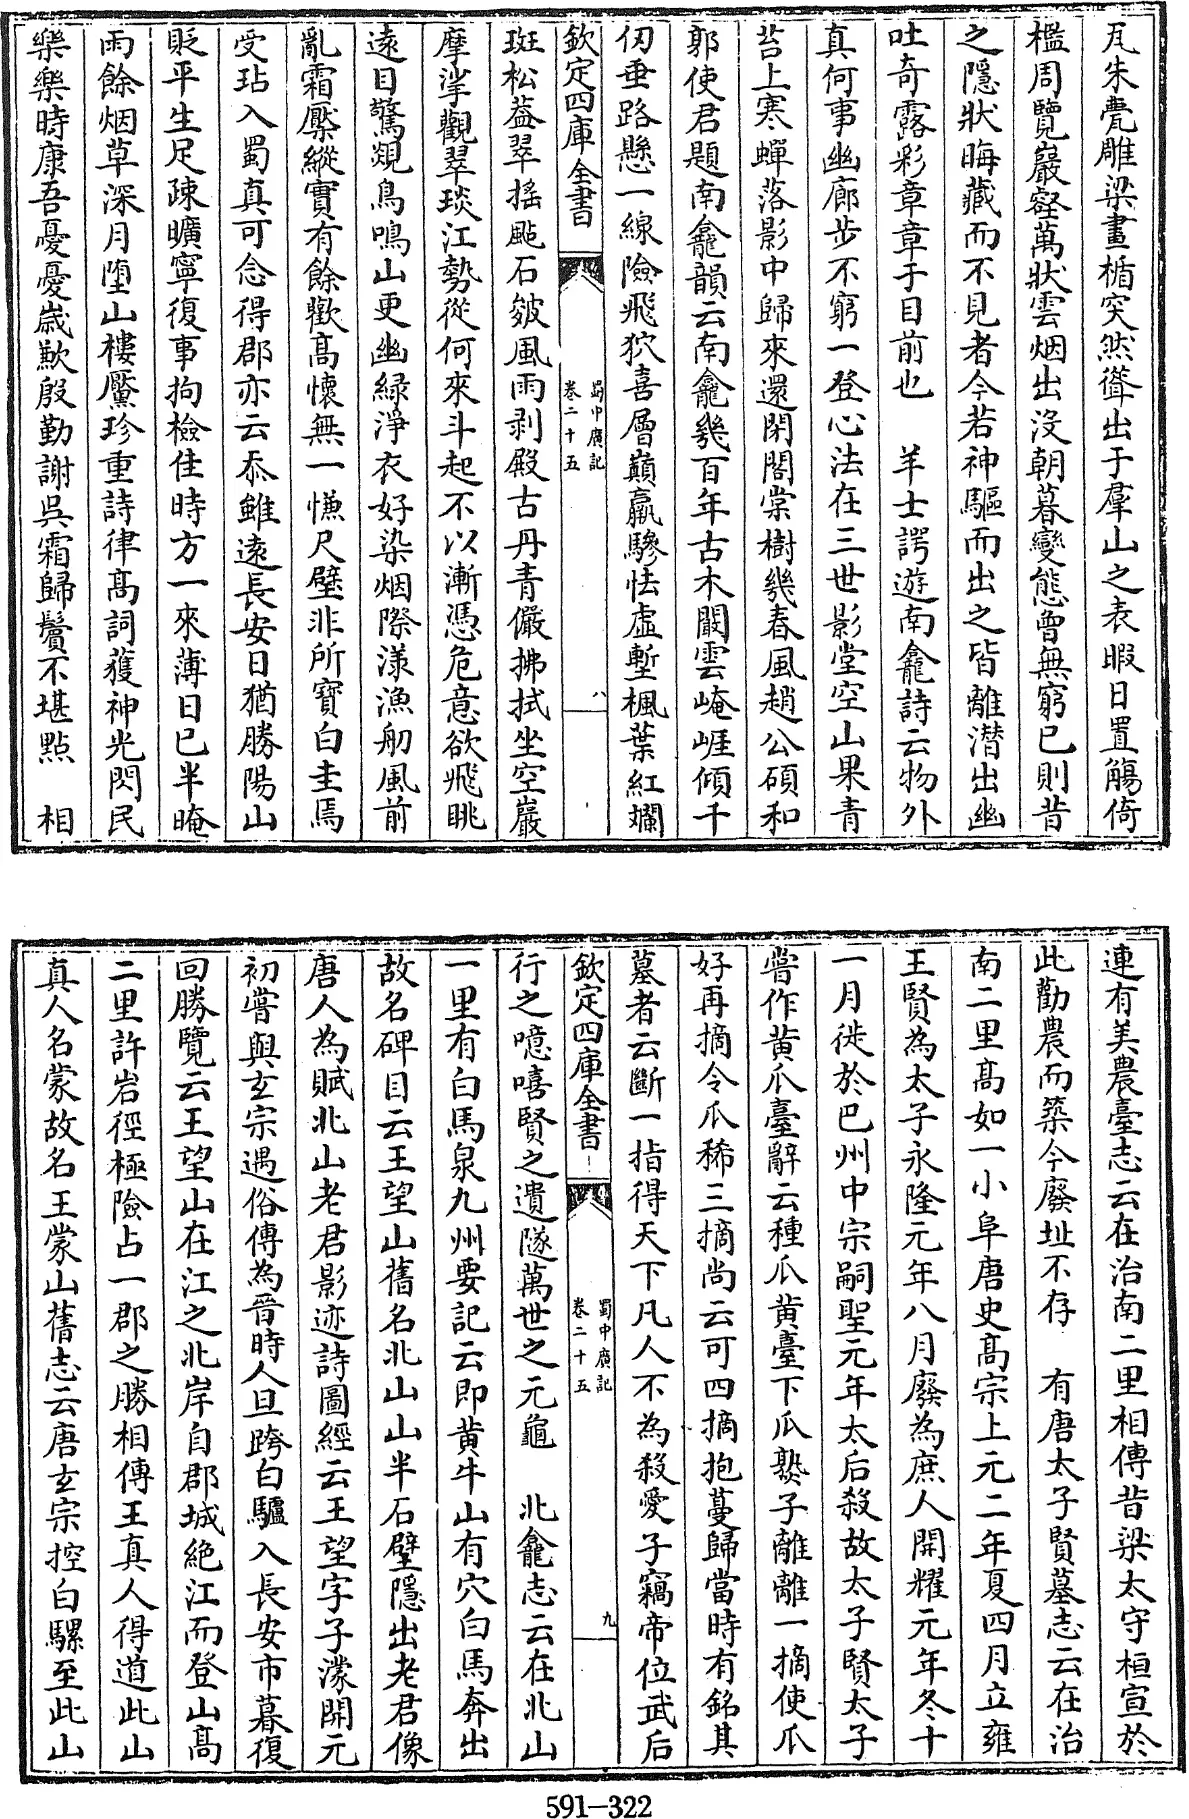 瓦朱甍雕梁畫楯突然聳出于羣山之表暇日置觴倚
檻周覽巖壑萬狀雲烟出沒朝暮變態曾無窮已則昔
之隱狀晦藏而不見者今若神驅而出之皆離潜出幽
吐奇露彩章章于目前也　羊士諤遊南龕詩云物外
真何事幽廊步不窮一登心法在三世影堂空山果青
苔上寒蟬落影中歸來還閉閤棠樹幾春風趙公碩和
郭使君題南龕韻云南龕幾百年古木闞雲崦崕傾千
仞垂路懸一線險飛狖喜層巔羸驂怯虛塹楓葉紅斕
欽定四庫全書
蜀中廣記
卷二十五
八
斑松葢翠搖颭石皴風雨剥殿古丹青儼拂拭坐空巖
摩挲觀翠琰江勢從何來斗起不以漸憑危意欲飛眺
遠目驚覢鳥鳴山更幽綠淨衣好染烟際漾漁舠風前
亂霜縻縱實有餘歡高懷無一慊尺璧非所寶白圭焉
受玷入蜀真可念得郡亦云忝雖遠長安日猶勝陽山
貶平生足疎曠寧復事拘檢佳時方一來薄日已半晻
雨餘烟草深月堕山樓黶珍重詩律高詞獲神光閃民
樂樂時康吾憂憂歳歉殷勤謝吳霜歸鬢不堪點　相
連有美農臺志云在治南二里相傳昔梁太守桓宣於
此勸農而築今廢址不存　有唐太子賢墓志云在治
南二里高如一小阜唐史高宗上元二年夏四月立雍
王賢為太子永隆元年八月廢為庶人開耀元年冬十
一月徙於巴州中宗嗣聖元年太后殺故太子賢太子
嘗作黄瓜臺辭云種瓜黄臺下瓜熟子離離一摘使瓜
好再摘令瓜稀三摘尚云可四摘抱蔓歸當時有銘其
墓者云斷一指得天下凡人不為殺愛子竊帝位武后
欽定四庫全書
蜀中廣記
卷二十五
九
行之噫嘻賢之遺隧萬世之元龜　北龕志云在北山
一里有白馬泉九州要記云即黄牛山有穴白馬奔出
故名碑目云王望山舊名北山山半石壁隱出老君像
唐人為賦北山老君影迹詩圖經云王望字子濛開元
初嘗與玄宗遇俗傳為晉時人旦跨白驢入長安市暮復
回勝覽云王望山在江之北岸自郡城絶江而登山高
二里許岩徑極險占一郡之勝相傳王真人得道此山
真人名蒙故名王蒙山舊志云唐玄宗控白騾至此山
591-322